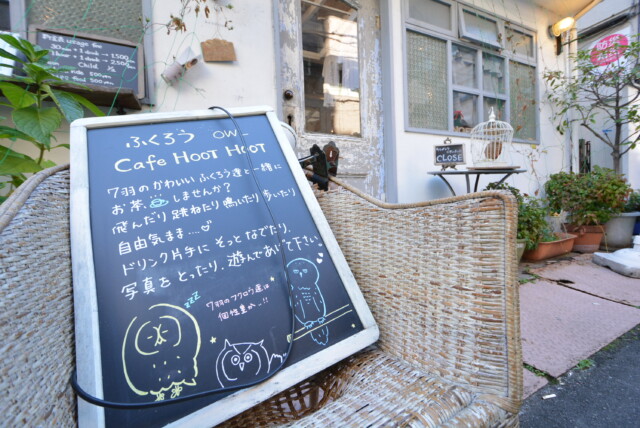 ふくろう OWL
Cafe HOOT HOOT
7羽のかわいい ふくろう達と一緒に
お茶 しませんか?
飛んだり 跳ねたり 鳴いたり 歩いたり
自由気まま....
ドリンク片手に そっと なでたり、
写真を とったり、遊んであげて下さい
zzz
7羽のフクロウ達は
個性豊か..!!
1 hour + 1 drink → 2,500
Child 1/2
CLOSE
防災